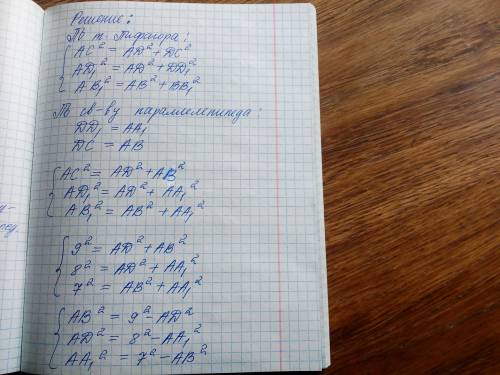 Решение:
По т. Пифагора:
AC² = AD² + DC²
AD₁² = AD² + DD₁²
AB₁² = AB² + BB₁²
По св-ву параллелепипеда
DD₁ = AA₁
DC = AB
AC² = AD² + AB²
AD₁² = AD² + AA₁²
AB₁² = AB² + AA₁²
9² = AD² + AB²
8² = AD² + AA₁²
7² = AB² + AA₁²
AB² = 9² - AD²
AD² = 8² - AA₁²
AA₁² = 7² - AB²